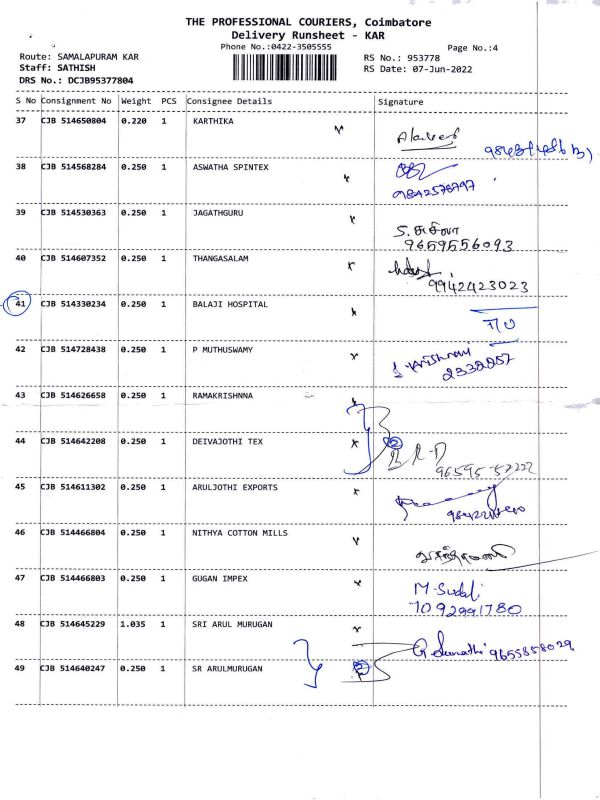 THE PROFESSIONAL COURIERS, Coimbatore
Delivery Runsheet - KAR
Phone No.:0422-3505555
Page No.:4
Route: SAMALAPURAM KAR
RS No.: 953778
Staff: SATHISH
RS Date: 07-Jun-2022
DRS No.: DCJB95377804
S No Consignment No Weight PCS Consignee Details Signature
37 CJB 514650804 0.220 1 KARTHIKA
38 CJB 514568284 0.250 1 ASWATHA SPINTEX
9842578797
39 CJB 514530363 0.250 1 JAGATHGURU
S. சுசீலா
9659556093
40 CJB 514607352 0.250 1 THANGASALAM
9942423023
41 CJB 514330234 0.250 1 BALAJI HOSPITAL
42 CJB 514728438 0.250 1 P MUTHUSWAMY
43 CJB 514626658 0.250 1 RAMAKRISHNNA
44 CJB 514642208 0.250 1 DEIVAJOTHI TEX
2
45 CJB 514611302 0.250 1 ARULJOTHI EXPORTS
46 CJB 514466804 0.250 1 NITHYA COTTON MILLS
47 CJB 514466803 0.250 1 GUGAN IMPEX
7092991780
48 CJB 514645229 1.035 1 SRI ARUL MURUGAN
9655858029
49 CJB 514640247 0.250 1 SR ARULMURUGAN
2